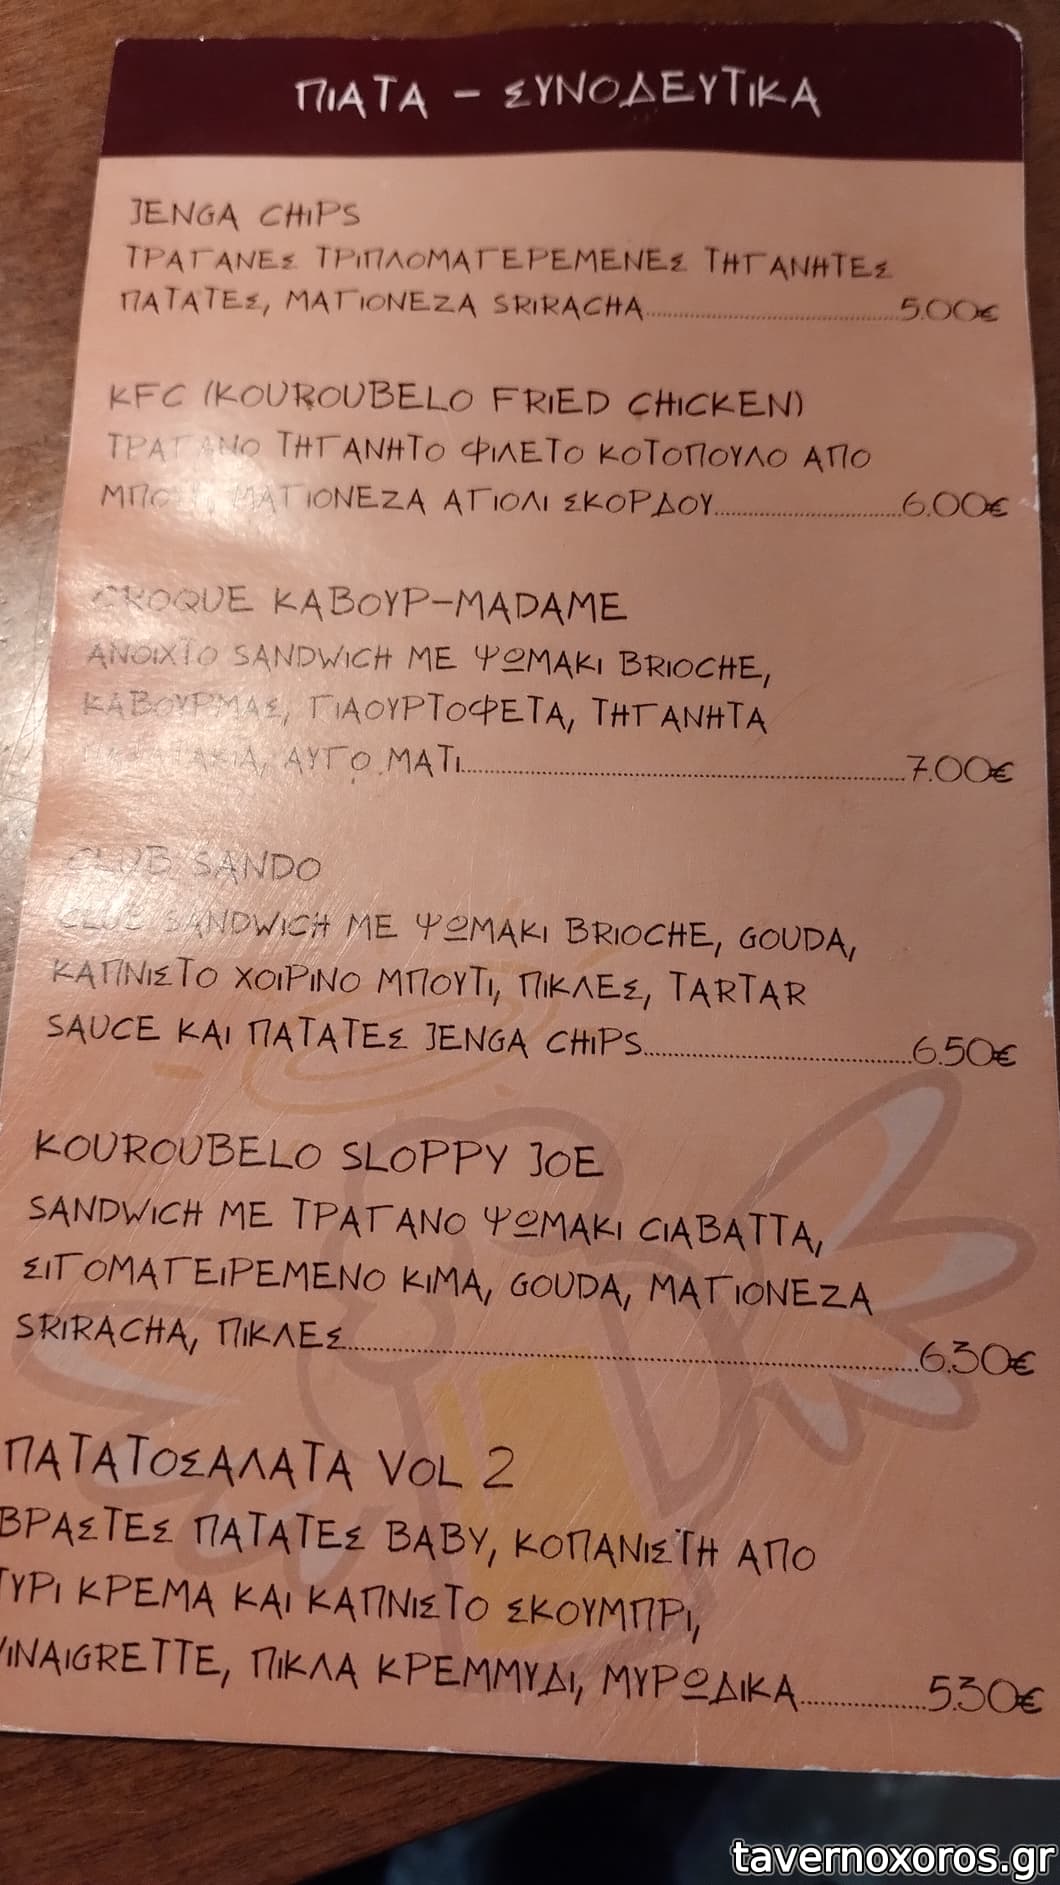 ΠΙΑΤΑ - ΣΥΝΟΔΕΥΤΙΚΑ
JENGA CHIPS
ΤΡΑΓΑΝΕΣ ΤΡΙΠΛΟΜΑΓΕΡΕΜΕΝΕΣ ΤΗΓΑΝΗΤΕΣ
ΠΑΤΑΤΕΣ, ΜΑΓΙΟΝΕΖΑ SRIRACHA..........5.00€
KFC (KOUROUBELO FRIED CHICKEN)
ΤΡΑΓΑΝΟ ΤΗΓΑΝΗΤΟ ΦΙΛΕΤΟ ΚΟΤΟΠΟΥΛΟ ΑΠΟ
ΜΑΓΙΟΝΕΖΑ ΑΓΙΟΛΙ ΣΚΟΡΔΟΥ..........6.00€
CROQUE ΚΑΒΟΥΡ-MADAME
ΑΝΟΙΧΤΟ SANDWICH ΜΕ ΨΩΜΑΚΙ BRIOCHE,
ΚΑΒΟΥΡΜΑΣ, ΓΙΑΟΥΡΤΟΦΕΤΑ, ΤΗΓΑΝΗΤΑ
ΑΥΓΟ ΜΑΤΙ..........7.00€
CLUB SANDO
CLUB SANDWICH ΜΕ ΨΩΜΑΚΙ BRIOCHE, GOUDA,
ΚΑΠΝΙΣΤΟ ΧΟΙΡΙΝΟ ΜΠΟΥΤΙ, ΠΙΚΛΕΣ, TARTAR
SAUCE ΚΑΙ ΠΑΤΑΤΕΣ JENGA CHIPS..........6.50€
KOUROUBELO SLOPPY JOE
SANDWICH ΜΕ ΤΡΑΓΑΝΟ ΨΩΜΑΚΙ CIABATTA,
ΣΙΓΟΜΑΓΕΙΡΕΜΕΝΟ ΚΙΜΑ, GOUDA, ΜΑΓΙΟΝΕΖΑ
SRIRACHA, ΠΙΚΛΕΣ..........6.30€
ΠΑΤΑΤΟΣΑΛΑΤΑ VOL 2
ΒΡΑΣΤΕΣ ΠΑΤΑΤΕΣ BABY, ΚΟΠΑΝΙΣΤΗ ΑΠΟ
ΤΥΡΙ ΚΡΕΜΑ ΚΑΙ ΚΑΠΝΙΣΤΟ ΣΚΟΥΜΠΡΙ,
VINAIGRETTE, ΠΙΚΛΑ ΚΡΕΜΜΥΔΙ, ΜΥΡΩΔΙΚΑ..........5.30€
tavernoxoros.gr